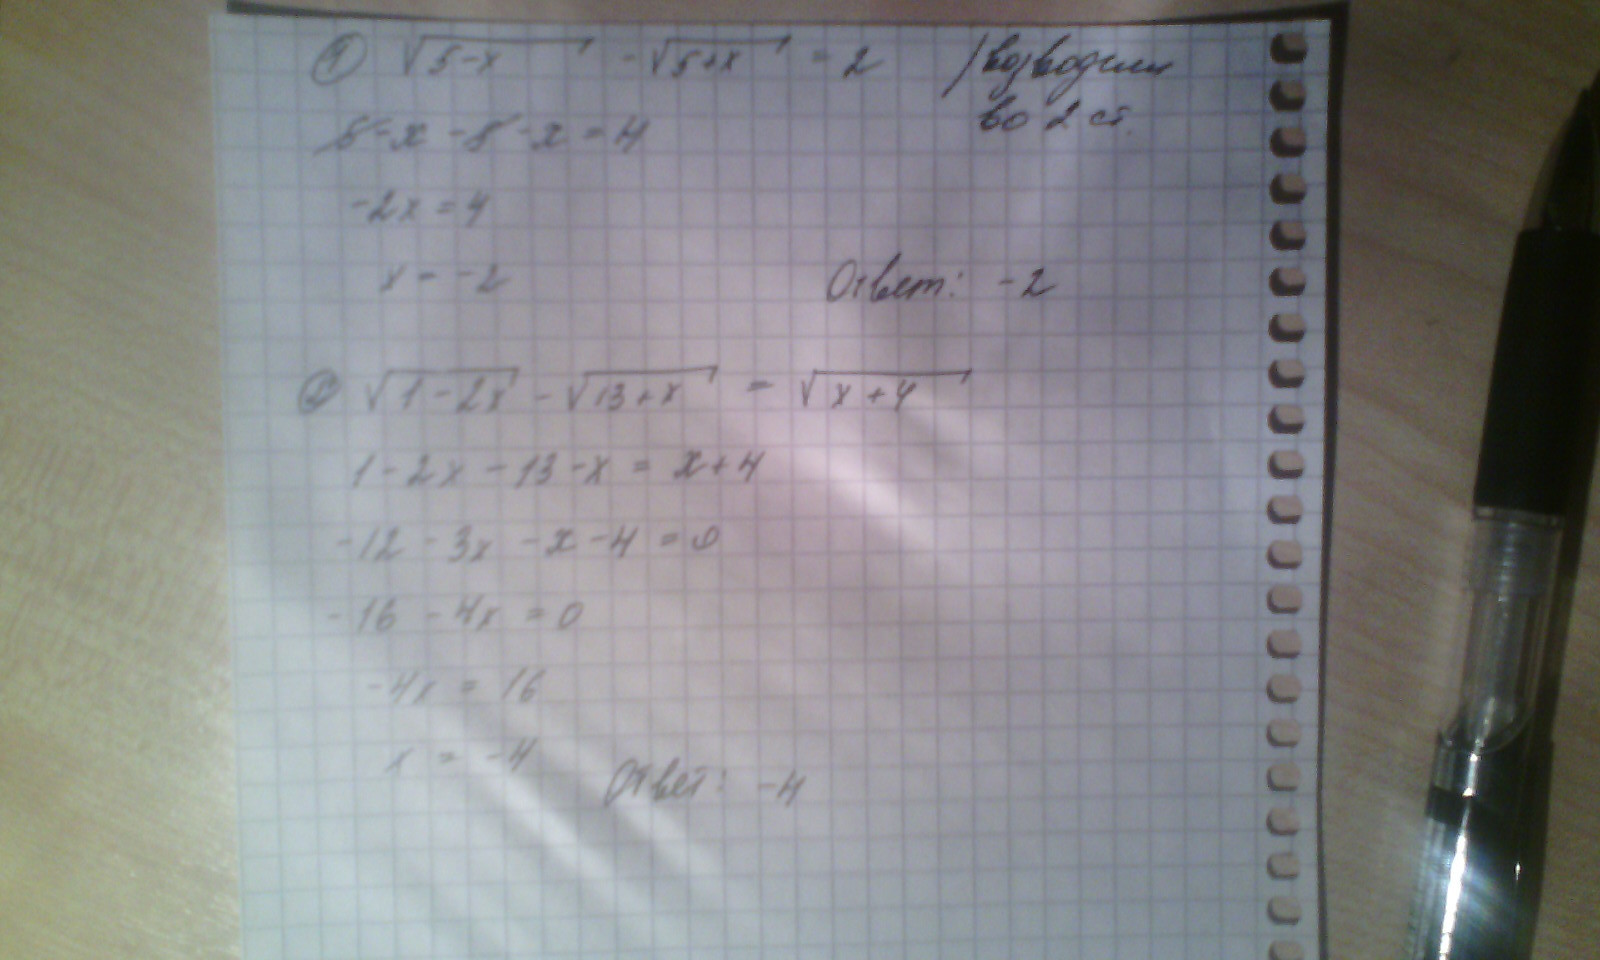 ① √5-x - √5+x = 2 / возводили
во 2 ст.
5-x-5-x=4
-2x=4
x = -2 Ответ: -2
② √1-2x - √13+x = √x+4
1-2x-13-x = x+4
-12-3x-x-4=0
-16-4x=0
-4x = 16
x = -4 Ответ: -4